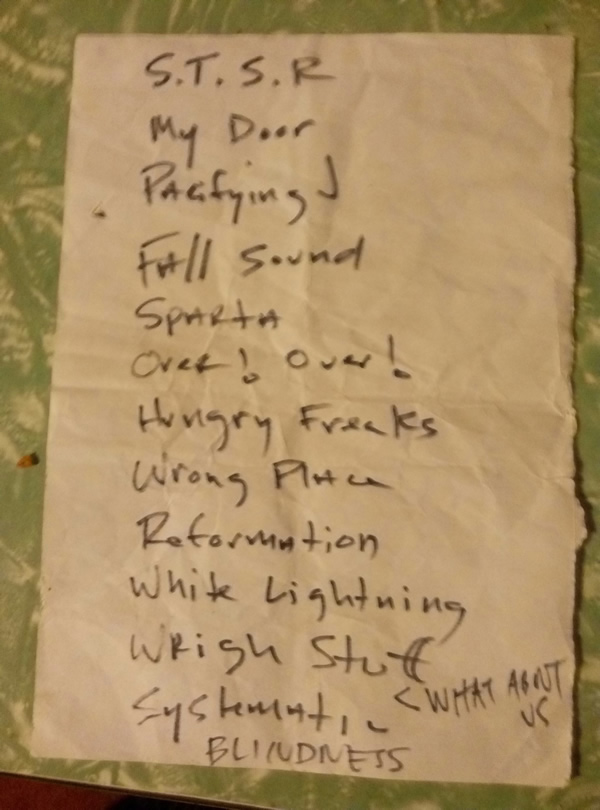 S.T. S.R
My Door
Pacifying J
Fall Sound
Sparta
Over! Over!
Hungry Freaks
Wrong Place
Reformation
White Lightning
Wrigh Stuff
< WHAT ABOUT
US
Systematic
BLINDNESS